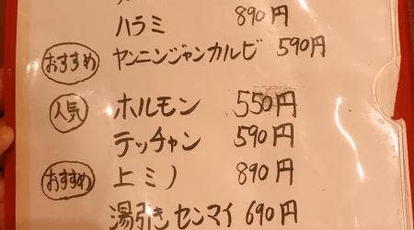 ハラミ 890円
おすすめ ヤンニンジャンカルビ 590円
人気 ホルモン 550円
テッチャン 590円
おすすめ 上ミノ 890円
湯引きセンマイ 690円